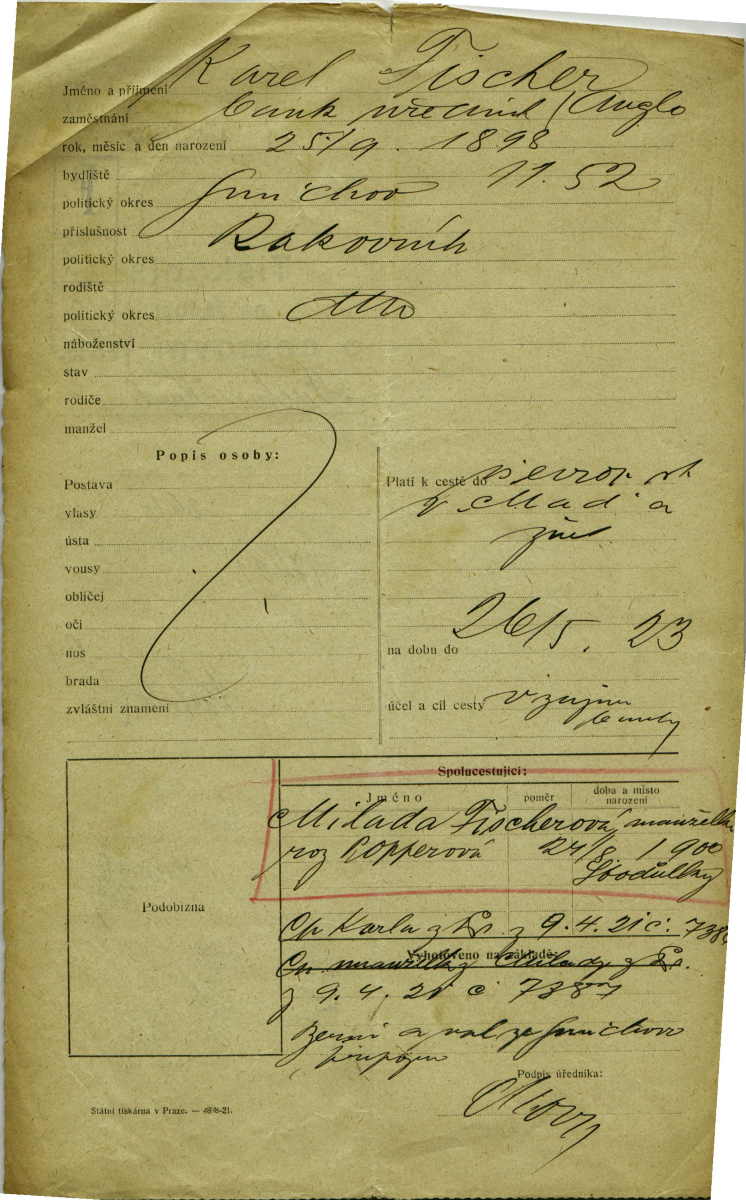 Jméno a příjmení Karel Fischer
zaměstnání bank úředník / Anglo
rok, měsíc a den narození 25/9. 1898
bydliště
politický okres Smíchov 11.52
příslušnost Rakovník
politický okres
rodiště
politický okres dtto
náboženství
stav
rodiče
manžel
Popis osoby:
Postava
vlasy
ústa
vousy
obličej
oči
nos
brada
zvláštní znamení
Platí k cestě do
v Maď a
na dobu do 26/5. 23
účel a cíl cesty v zájmu
banky
Spolucestující:
Jméno poměr doba a místo narození
Milada Fischerová, manželka
roz Popperová 24/8 1900
Stodůlky
Podobizna
Cp Karla z 9.4.21 č. 738
Vyhotoveno na základě:
Cp manželky Milady z
z 9.4.21 č 738
a ze Smíchova
připojen
Podpis úředníka:
Státní tiskárna v Praze. —